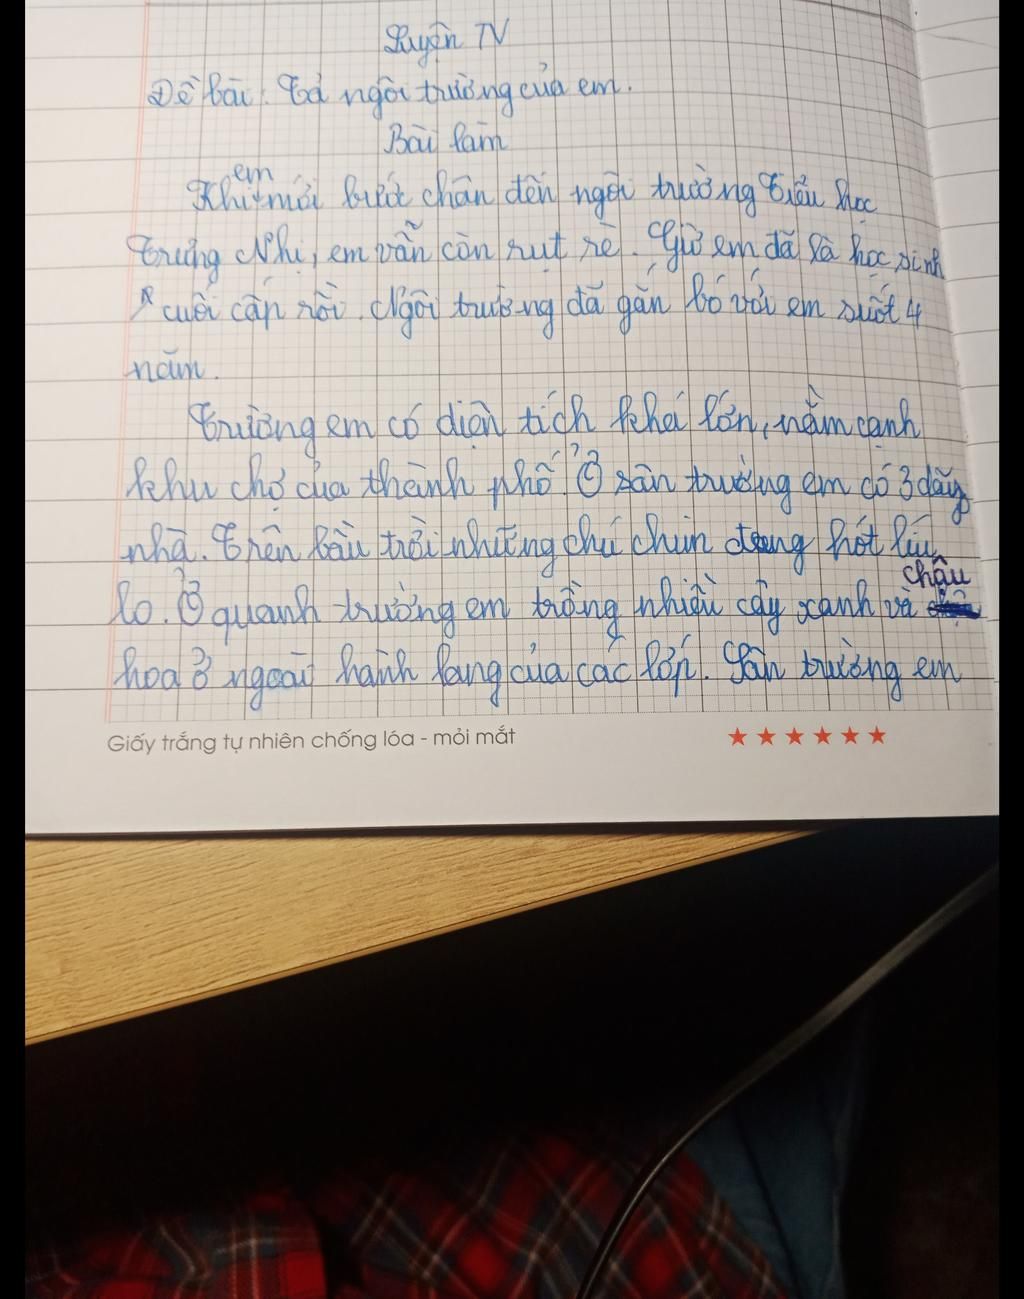 Luyện TV
Đề bài: Tả ngôi trường của em.
Bài làm
Khi em mới bước chân đến ngôi trường Tiểu học
Trưng Nhị, em vẫn còn rụt rè. Giờ em đã là học sinh
cuối cấp rồi. Ngôi trường đã gắn bó với em suốt 4
năm.
Trường em có diện tích khá lớn, nằm cạnh
khu chợ của thành phố. Ở sân trường em có 3 dãy
nhà. Trên bầu trời những chú chim đang hót líu
lo. Ở quanh trường em trồng nhiều cây xanh và chậu
hoa ở ngoài hành lang của các lớp. Sân trường em
Giấy trắng tự nhiên chống lóa - mỏi mắt